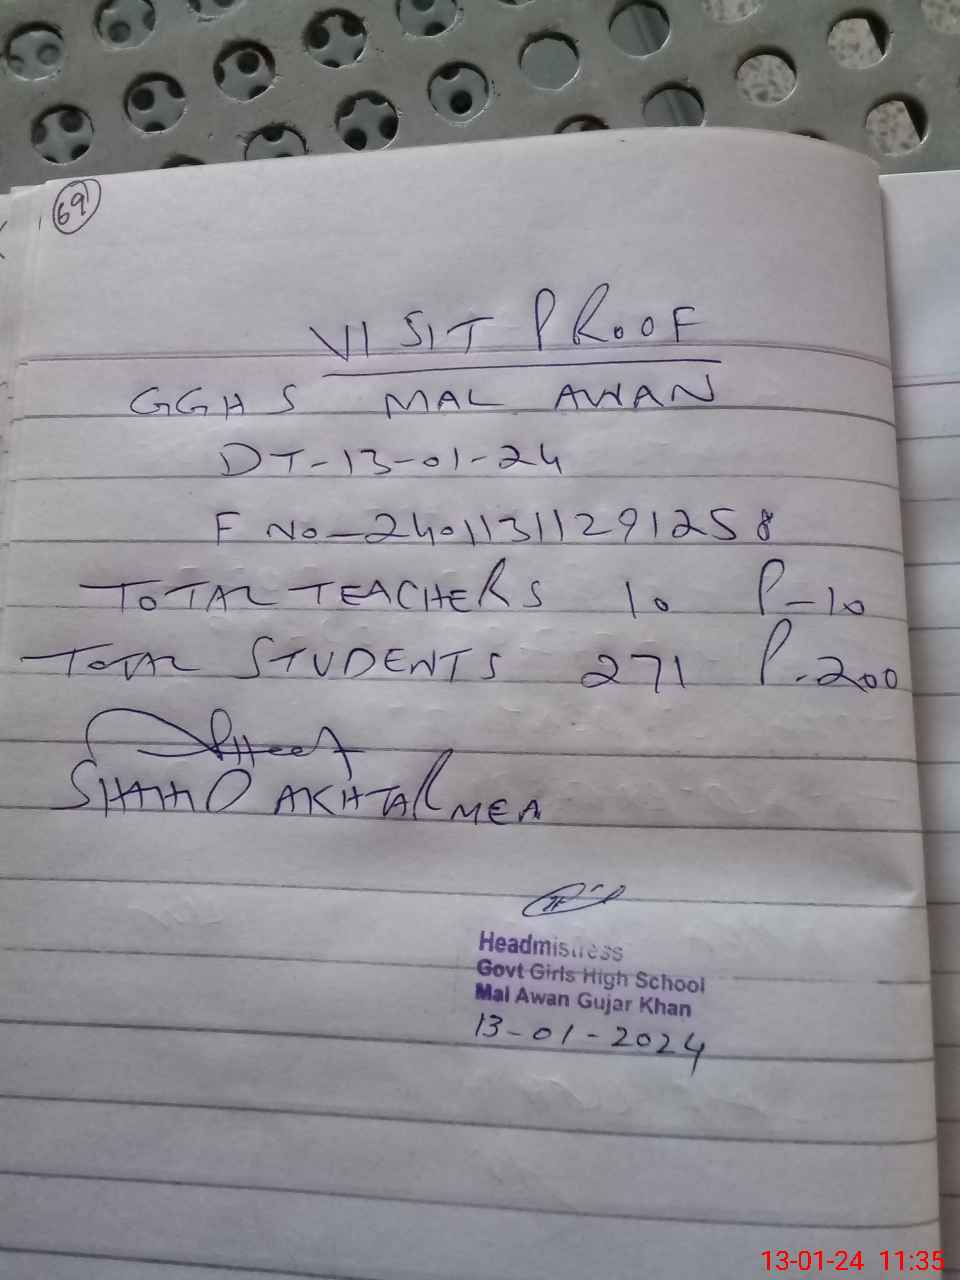 69
VISIT PROOF
GGHS MAL AWAN
DT-13-01-24
F No-24011311291258
TOTAL TEACHERS 10 P-10
TOTAL STUDENTS 271 P-200
AKHTAR MEA
Headmistress
Govt Girls High School
Mal Awan Gujar Khan
13-01-2024
13-01-24 11:35